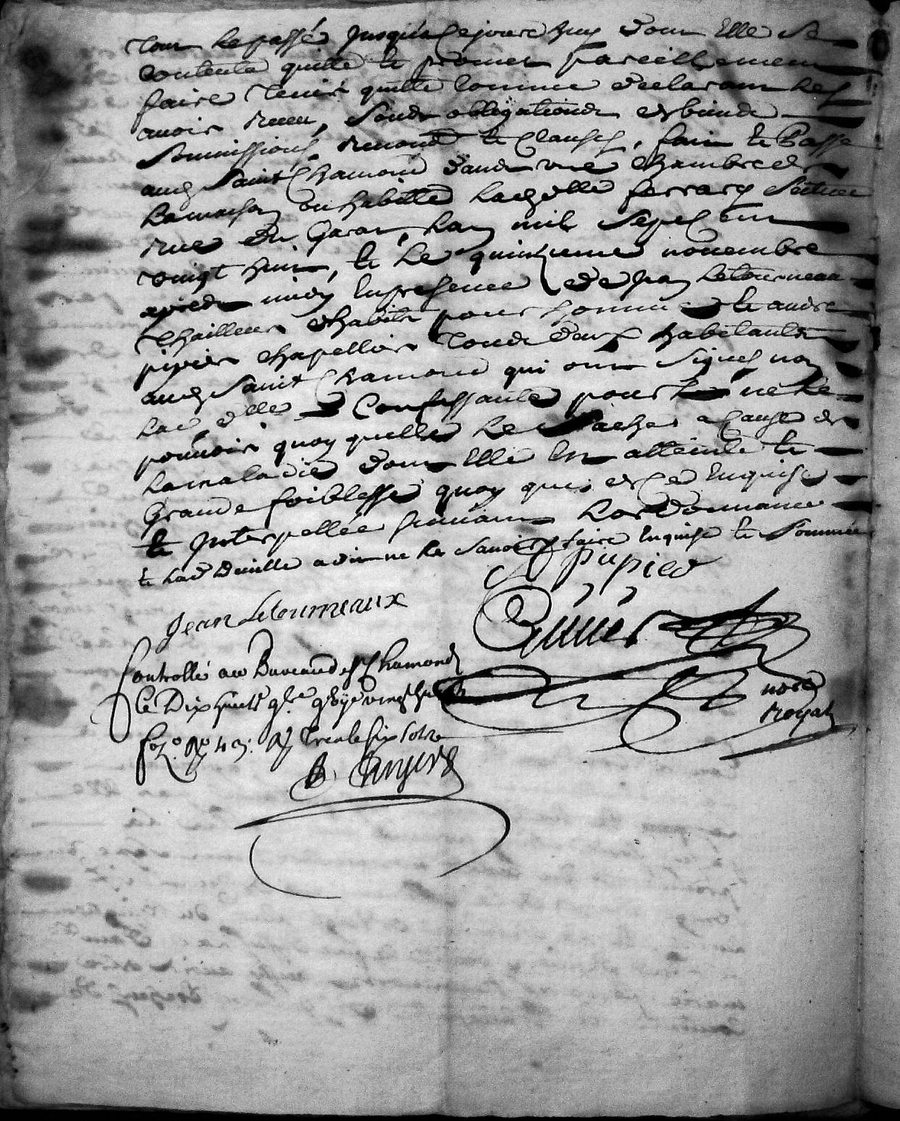 tout le passé jusques a ce jourd huy dont Elle se
contente quitte et promet pareillement
faire tenir quitte comme declarant les
avoir receu, soubs obligations et biens
soumissions, renonc et clauses, fait et Passé
aud Saint Chamond dans une chambre de
la maison ou habitte lad elle ferrary scituee
rue du Garat, L'an mil sept cent
vingt huit, et le quinzieme novembre
apres midy En presence de Jean Letourneau
thailleur d'habits pour homme et andre
pipier chapellier tous deux habitants
aud Saint Chamond qui ont signes non
lad elle Confessante pour ne le
pouvoir quoy quelle le sache a cause de
la maladie dont Elle Est atteinte et
Grande foiblesse quoy que de ce Enquise
et Interpellée suivant L'ordonnance
et lad Deville a dit ne le savoir faire Enquise et Sommee
A pupier
Jean Letourneaux
Controllé au Bureau de St Chamond
Ce Dix huit 9bre vingt huit
fo Rs Trente six sols
nore
Royal